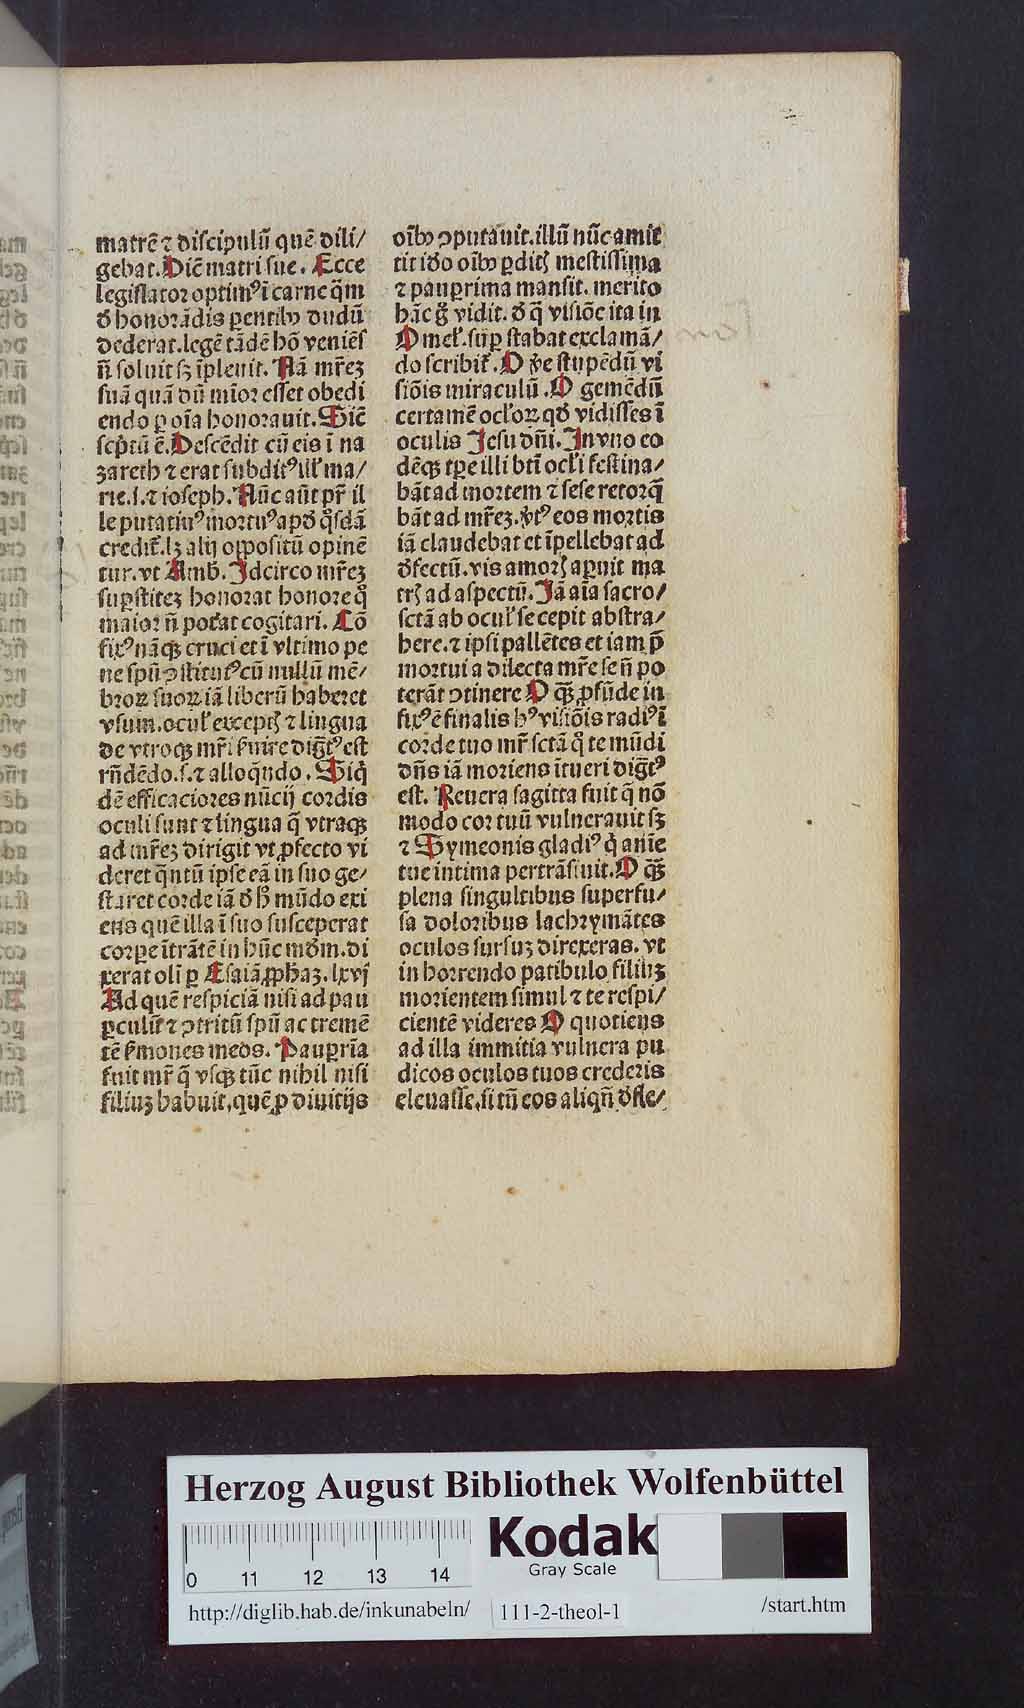 matrē ⁊ discipulū quē dili/
gebat. Diē matri sue. Ecce
legislator optimꝰ ī carne q̄m
đ honorādis parentibꝫ dudū
dederat. legē tādē hō veniēs
n̄ soluit sꝫ īpleuit. Nā mr̄eꝫ
suā quā dū mīor esset obedi
endo ꝑ oīa honorauit. Siē
scp̄tū ē. Descēdit cū eis ī na
zareth ⁊ erat subditꝰ ill' ma/
rie .s. ⁊ ioseph. Nūc aūt pr̄ il
le putatiuꝰ mortuꝰ apđ q̊sdā
credit̄. lꝫ alij oppositū opinē
tur. vt Amb. Idcirco mr̄eꝫ
suꝑstiteꝫ honorat honore q̊
maior n̄ poťat cogitari. Cō
fixꝰ nāqꝫ cruci et ī vltimo pe
ne spū ꝯstitutꝰ cū nullū mē/
broꝝ suoꝝ iā liberū haberet
vsum. ocul' exceptꝭ ⁊ lingua
de vtroqꝫ mr̄i ẜuire dig̅tꝰ est
rn̄dēdo .s. ⁊ alloq̄ndo. Siq̇
dē efficaciores nūcij cordis
oculi sunt ⁊ lingua q̄ vtraqꝫ
ad mr̄eꝫ dirigit vt ꝓfecto vi
deret q̄ntū ipse eā in suo ge/
staret corde iā đ h̊ mūdo exi
ens quē illa ī suo susceperat
corpe ītrātē in hūc mđm. di
xerat oli ꝑ Esaiā ꝓphaꝫ. lxvj
Ad quē respiciā nisi ad pau
ꝑculū ⁊ ꝯtritū spū ac tremē
tē ẜmones meos. Pauꝑrīa
fuit mr̄ q̄ vsqꝫ tūc nihil nisi
filiuꝫ habuit, quē ꝓ diuitijs
oībꝫ ꝯputauit. illū nūc amit
tit iđo oībꝫ ꝑditꝭ mestissima
⁊ pauꝑrima mansit. merito
hāc g̊ vidit. đ q̄ visiōe ita in
Omel'. suꝑ stabat exclamā/
do scribit̄. O v̄e stupēdū vi
siōis miraculū. O gemēdū
certamē ocl'oꝝ qđ vidisses ī
oculis Jesu dn̄i. In vno eo
dēqꝫ tꝑe illi btī ocl'i festina/
bāt ad mortem ⁊ sese retorq̄
bāt ad mr̄eꝫ. v̓tꝰ eos mortis
iā claudebat et īpellebat ad
đfectū. vis amorꝭ aperuit ma
trꝭ ad aspectū. Jā aīa sacro/
sctā ab ocul' se cepit abstra/
here. ⁊ ipsi pallētes et iam p̄
mortui a dilecta mr̄e se n̄ po
terāt ꝯtinere O qꝫ̄ ꝓfūde in
fixꝰ ē finalis hꝰ visiōis radiꝰ ī
corde tuo mr̄ sctā q̊ te mūdi
dn̄s iā moriens ītueri dig̅tꝰ
est. Reuera sagitta fuit q̄ nō
modo cor tuū vulnerauit sꝫ
⁊ Symeonis gladiꝰ q̇ anīe
tue intima pertrāsiuit. O qꝫ̄
plena singultibus superfu/
sa doloribus lachrymātes
oculos sursuꝫ direxeras. vt
in horrendo patibulo filiuꝫ
morientem simul ⁊ te respi/
cientē videres O quotiens
ad illa immitia vulnera pu
dicos oculos tuos crederis
eleuasse. si tn̄ eos aliqn̄ đfle/
Herzog August Bibliothek Wolfenbüttel
0 11 12 13 14
Kodak
Gray Scale
http://diglib.hab.de/inkunabeln/ 111-2-theol-1 /start.htm